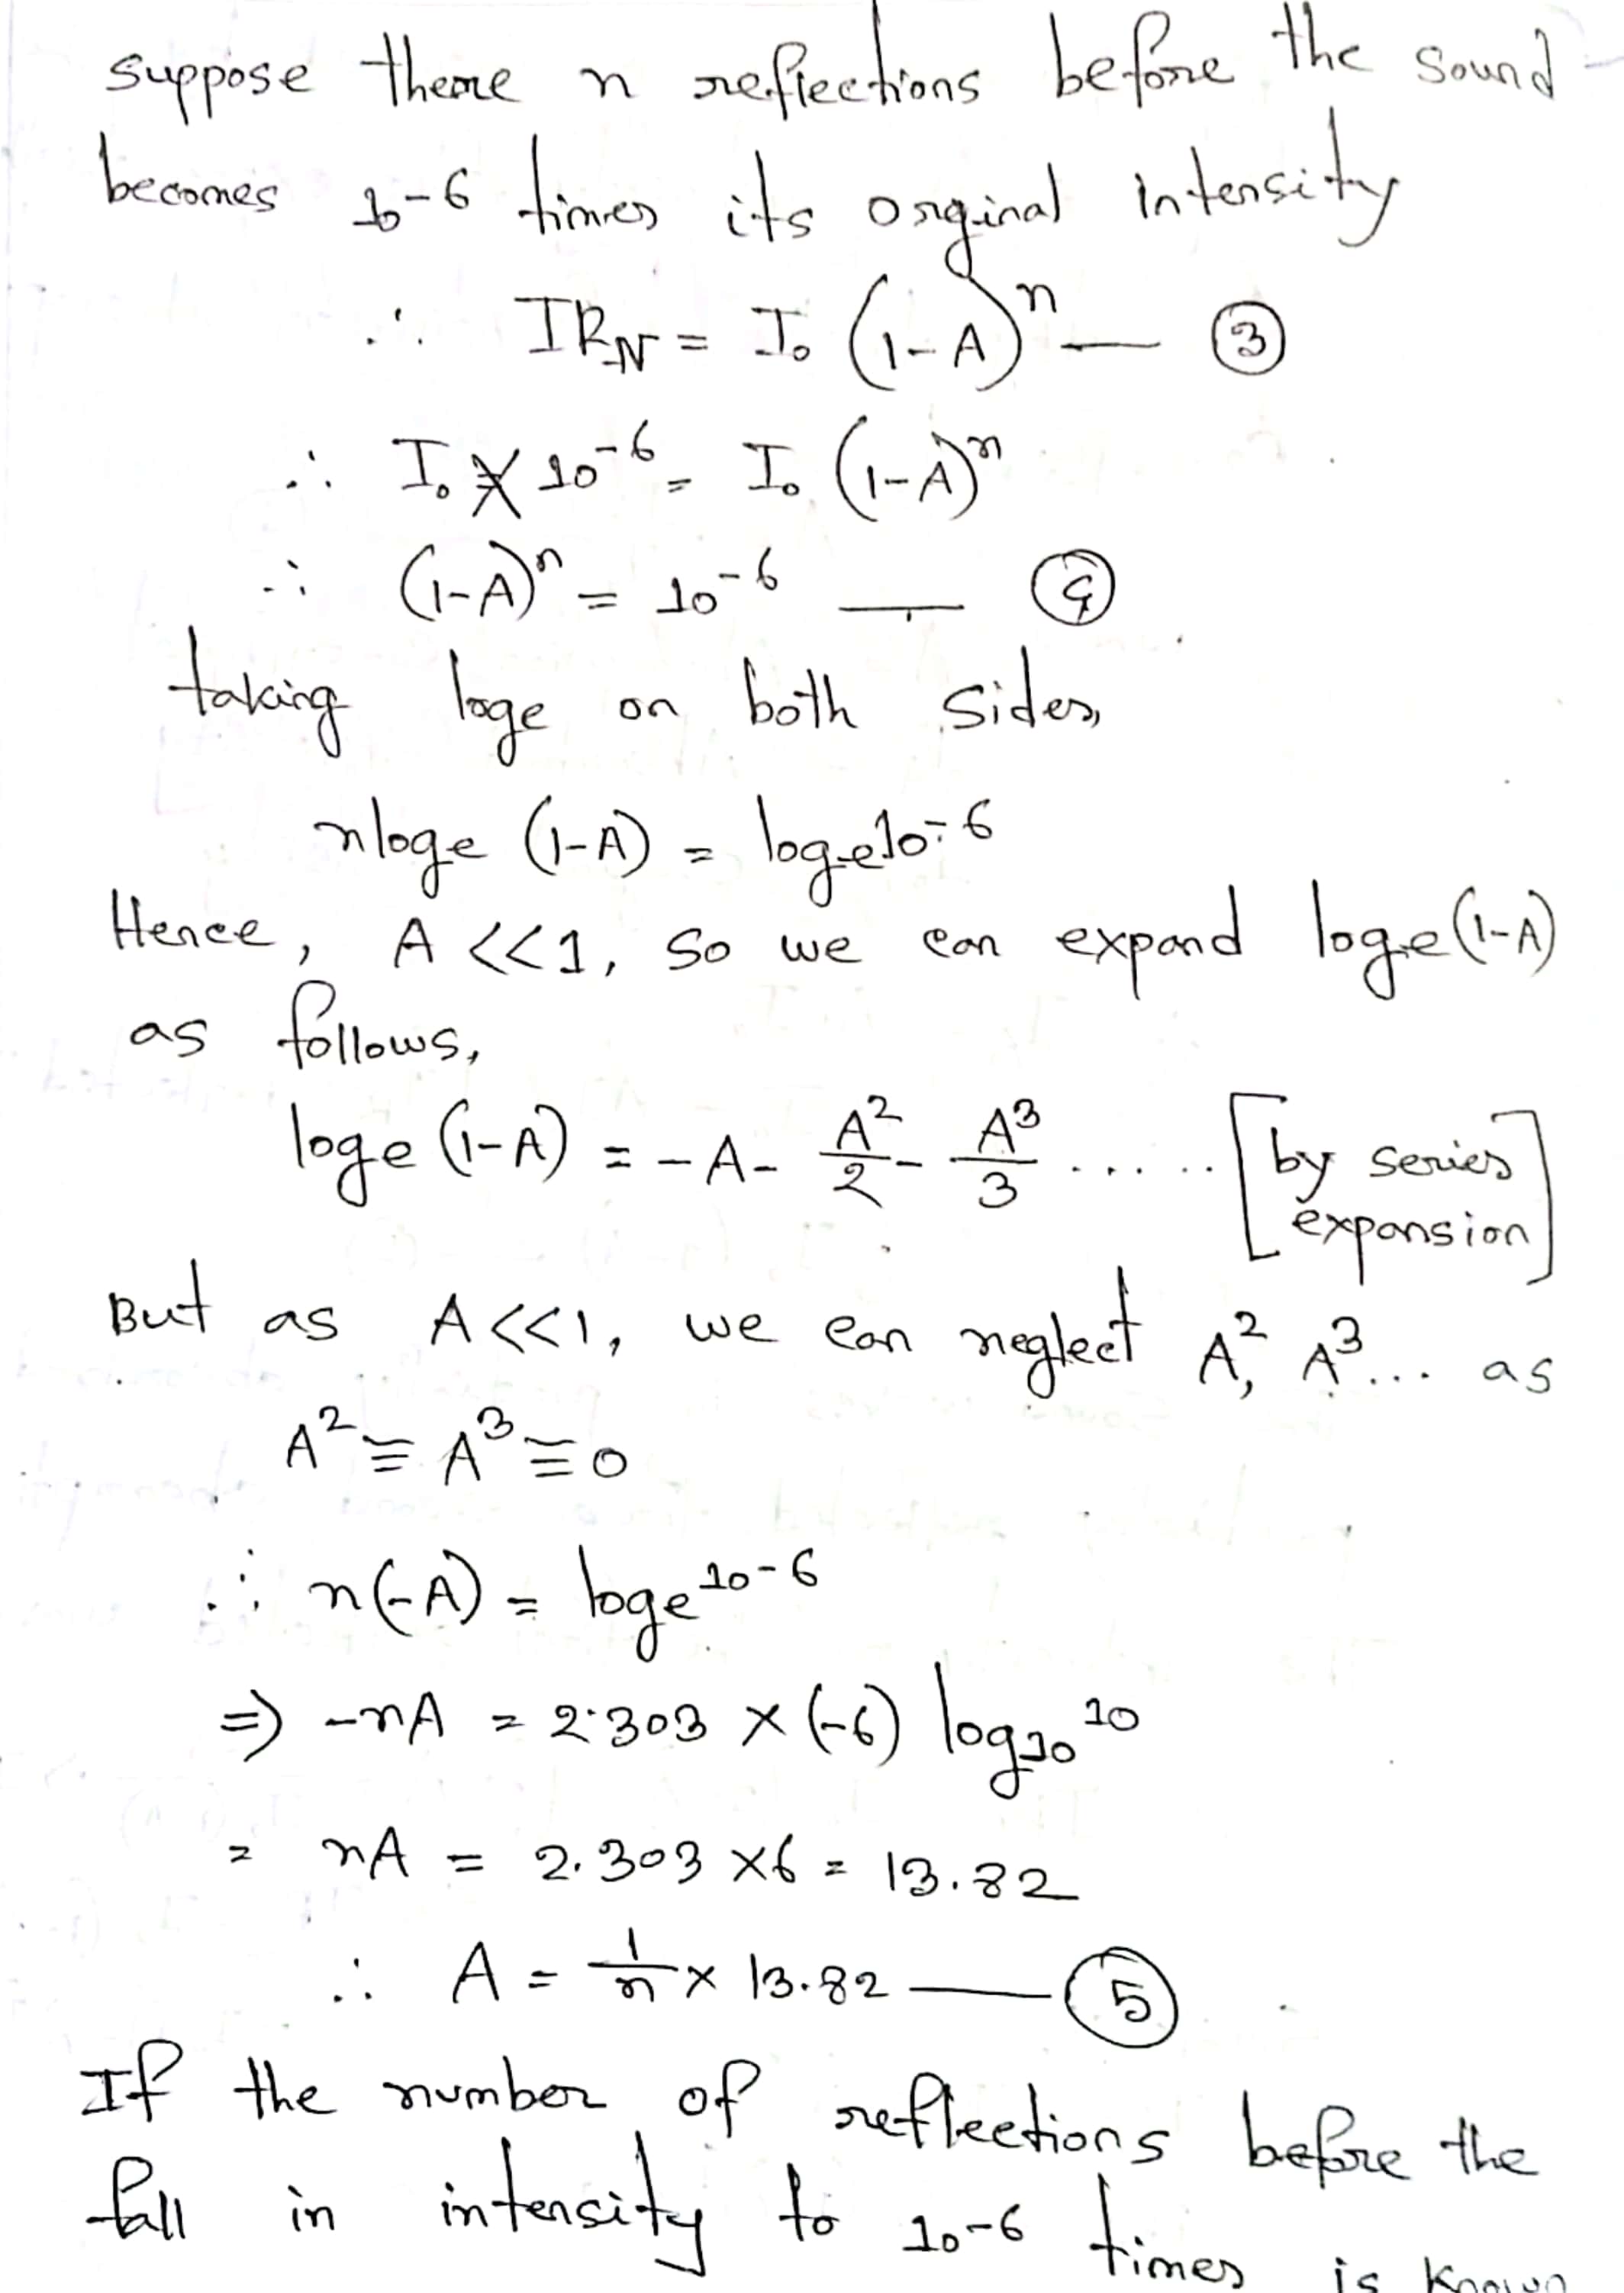 suppose there n reflections before the sound
becomes 10-6 times its orginal intensity
∴ IRN = I₀ (1-A)ⁿ — ③
∴ I₀ X 10⁻⁶ = I₀ (1-A)ⁿ
∴ (1-A)ⁿ = 10⁻⁶ — ④
taking loge on both sides,
nloge (1-A) = loge10⁻⁶
Hence, A <<1, so we can expand loge(1-A)
as follows,
loge (1-A) = -A- A²/2 - A³/3 ...... [by series
expansion]
But as A<<1, we can neglect A², A³... as
A² ≡ A³ ≡ 0
∴ n(-A) = loge 10-6
⇒ -nA = 2.303 × (-6) log₁₀ 10
= nA = 2.303 ×6 = 13.82
∴ A = 1/n × 13.82 — ⑤
If the number of reflections before the
fall in intensity to 10-6 times is known